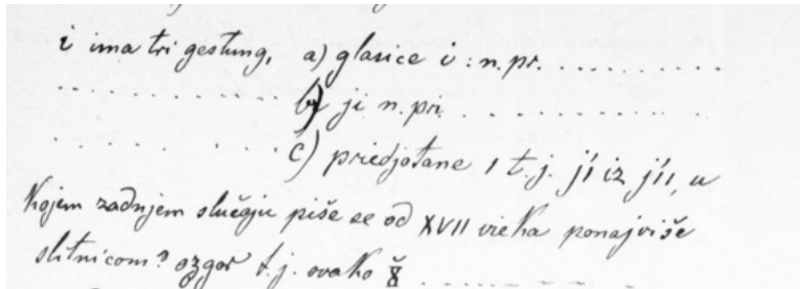 i ima tri geltung, a) glasice i : n.pr. ..........
............ b) ji n.pr. ..........
............ c) priedjotane 1 t.j. jí iz jíı, u
kojem zadnjem slučaju piše se od XVII vieka ponajviše
slitnicom? ozgor t.j. ovako ..........